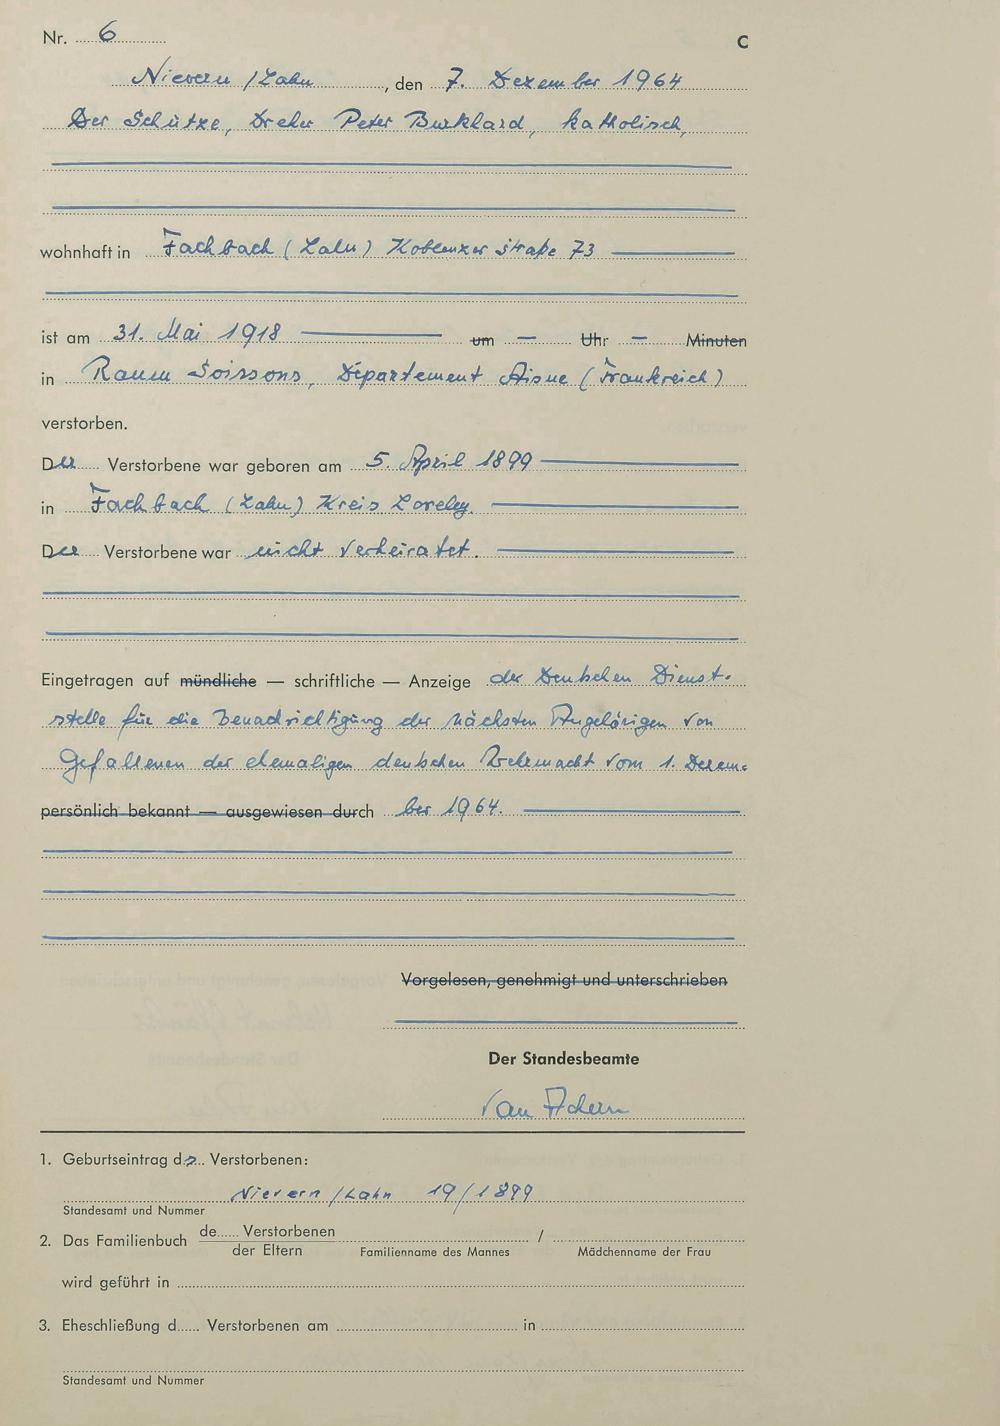 Nr. 6
C
Nievern/Lahn, den 7. Dezember 1964
Der Schütze, Dreher Peter Burkhard, katholisch,
wohnhaft in Fachbach (Lahn) Koblenzer Straße 73
ist am 31. Mai 1918 um – Uhr – Minuten
in Raum Soissons, Departement Aisne (Frankreich)
verstorben.
Der Verstorbene war geboren am 5. April 1899
in Fachbach (Lahn) Kreis Loreley.
Der Verstorbene war nicht verheiratet.
Eingetragen auf mündliche — schriftliche — Anzeige der Deutschen Dienst-
stelle für die Benachrichtigung der nächsten Angehörigen von
Gefallenen der ehemaligen deutschen Wehrmacht vom 1. Dezem-
persönlich bekannt — ausgewiesen durch ber 1964.
Vorgelesen, genehmigt und unterschrieben
Der Standesbeamte
1. Geburtseintrag des Verstorbenen:
Nievern/Lahn 19/1899
Standesamt und Nummer
2. Das Familienbuch de Verstorbenen /
der Eltern Familienname des Mannes Mädchenname der Frau
wird geführt in
3. Eheschließung d Verstorbenen am in
Standesamt und Nummer